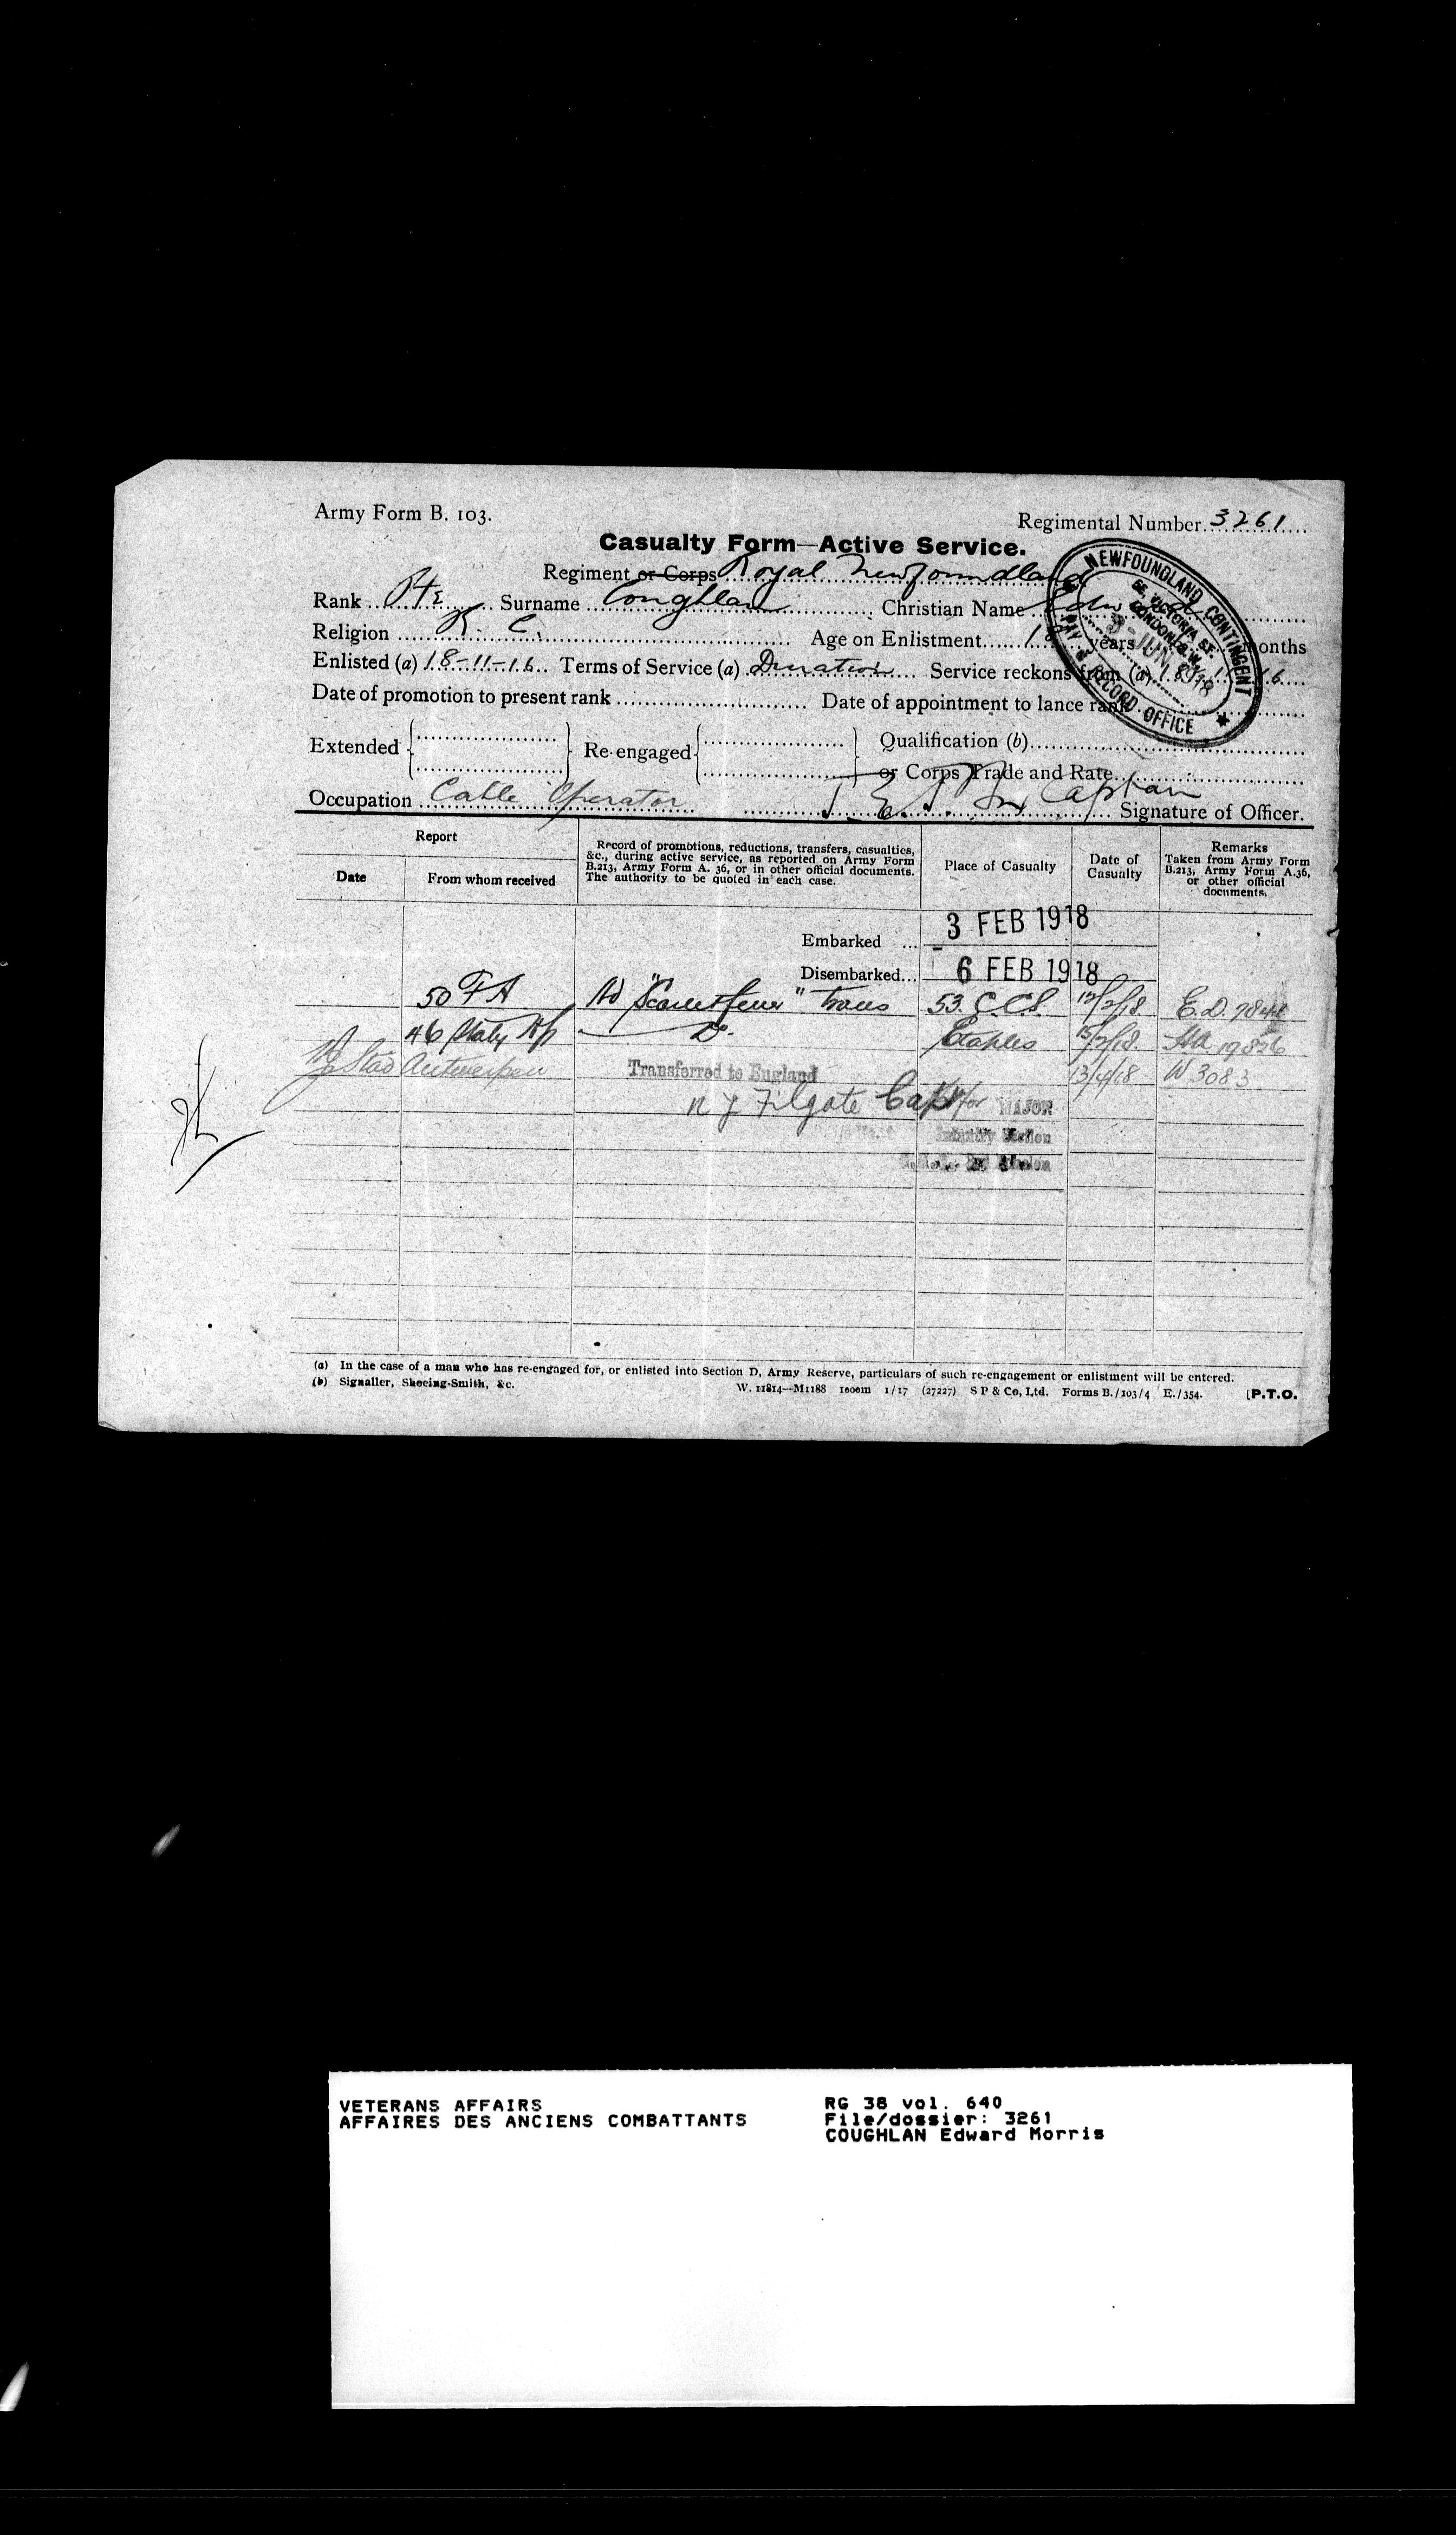 Army Form B. 103.
Regimental Number 3261
Casualty Form—Active Service.
Regiment or Corps Royal Newfoundland
Rank Pte Surname Coughlan Christian Name Edw
Religion R. C. Age on Enlistment years months
Enlisted (a) 18-11-16 Terms of Service (a) Duration Service reckons from (a) 18 16
Date of promotion to present rank Date of appointment to lance rank
NEWFOUNDLAND CONTINGENT
58, VICTORIA ST.
LONDON, S.W.
JUN 1918
PAY & RECORD OFFICE
Extended Re-engaged Qualification (b)
or Corps Trade and Rate
Occupation Cable Operator Captain Signature of Officer.
Report
Date
From whom received
Record of promotions, reductions, transfers, casualties,
&c., during active service, as reported on Army Form
B.213, Army Form A. 36, or in other official documents.
The authority to be quoted in each case.
Place of Casualty
Date of
Casualty
Remarks
Taken from Army Form
B.213, Army Form A.36,
or other official
documents.
Embarked ... 3 FEB 1918
Disembarked... 6 FEB 1918
50 FA Ad "Scarlet fever" trans 53. C.C.S. 12/2/18 E.D.
46 Staty Hp Do. Etaples 15/2/18. 19826
Stad Antwerpen Transferred to England 13/4/18 W 3083
N J Filgate Capt for MAJOR
Infantry Section
(a) In the case of a man who has re-engaged for, or enlisted into Section D, Army Reserve, particulars of such re-engagement or enlistment will be entered.
(b) Signaller, Shoeing-Smith, &c.
W. 11814—M1188 1000m 1/17 (27227) S P & Co, Ltd. Forms B./103/4 E./354. [P.T.O.
VETERANS AFFAIRS
AFFAIRES DES ANCIENS COMBATTANTS
RG 38 vol. 640
File/dossier: 3261
COUGHLAN Edward Morris